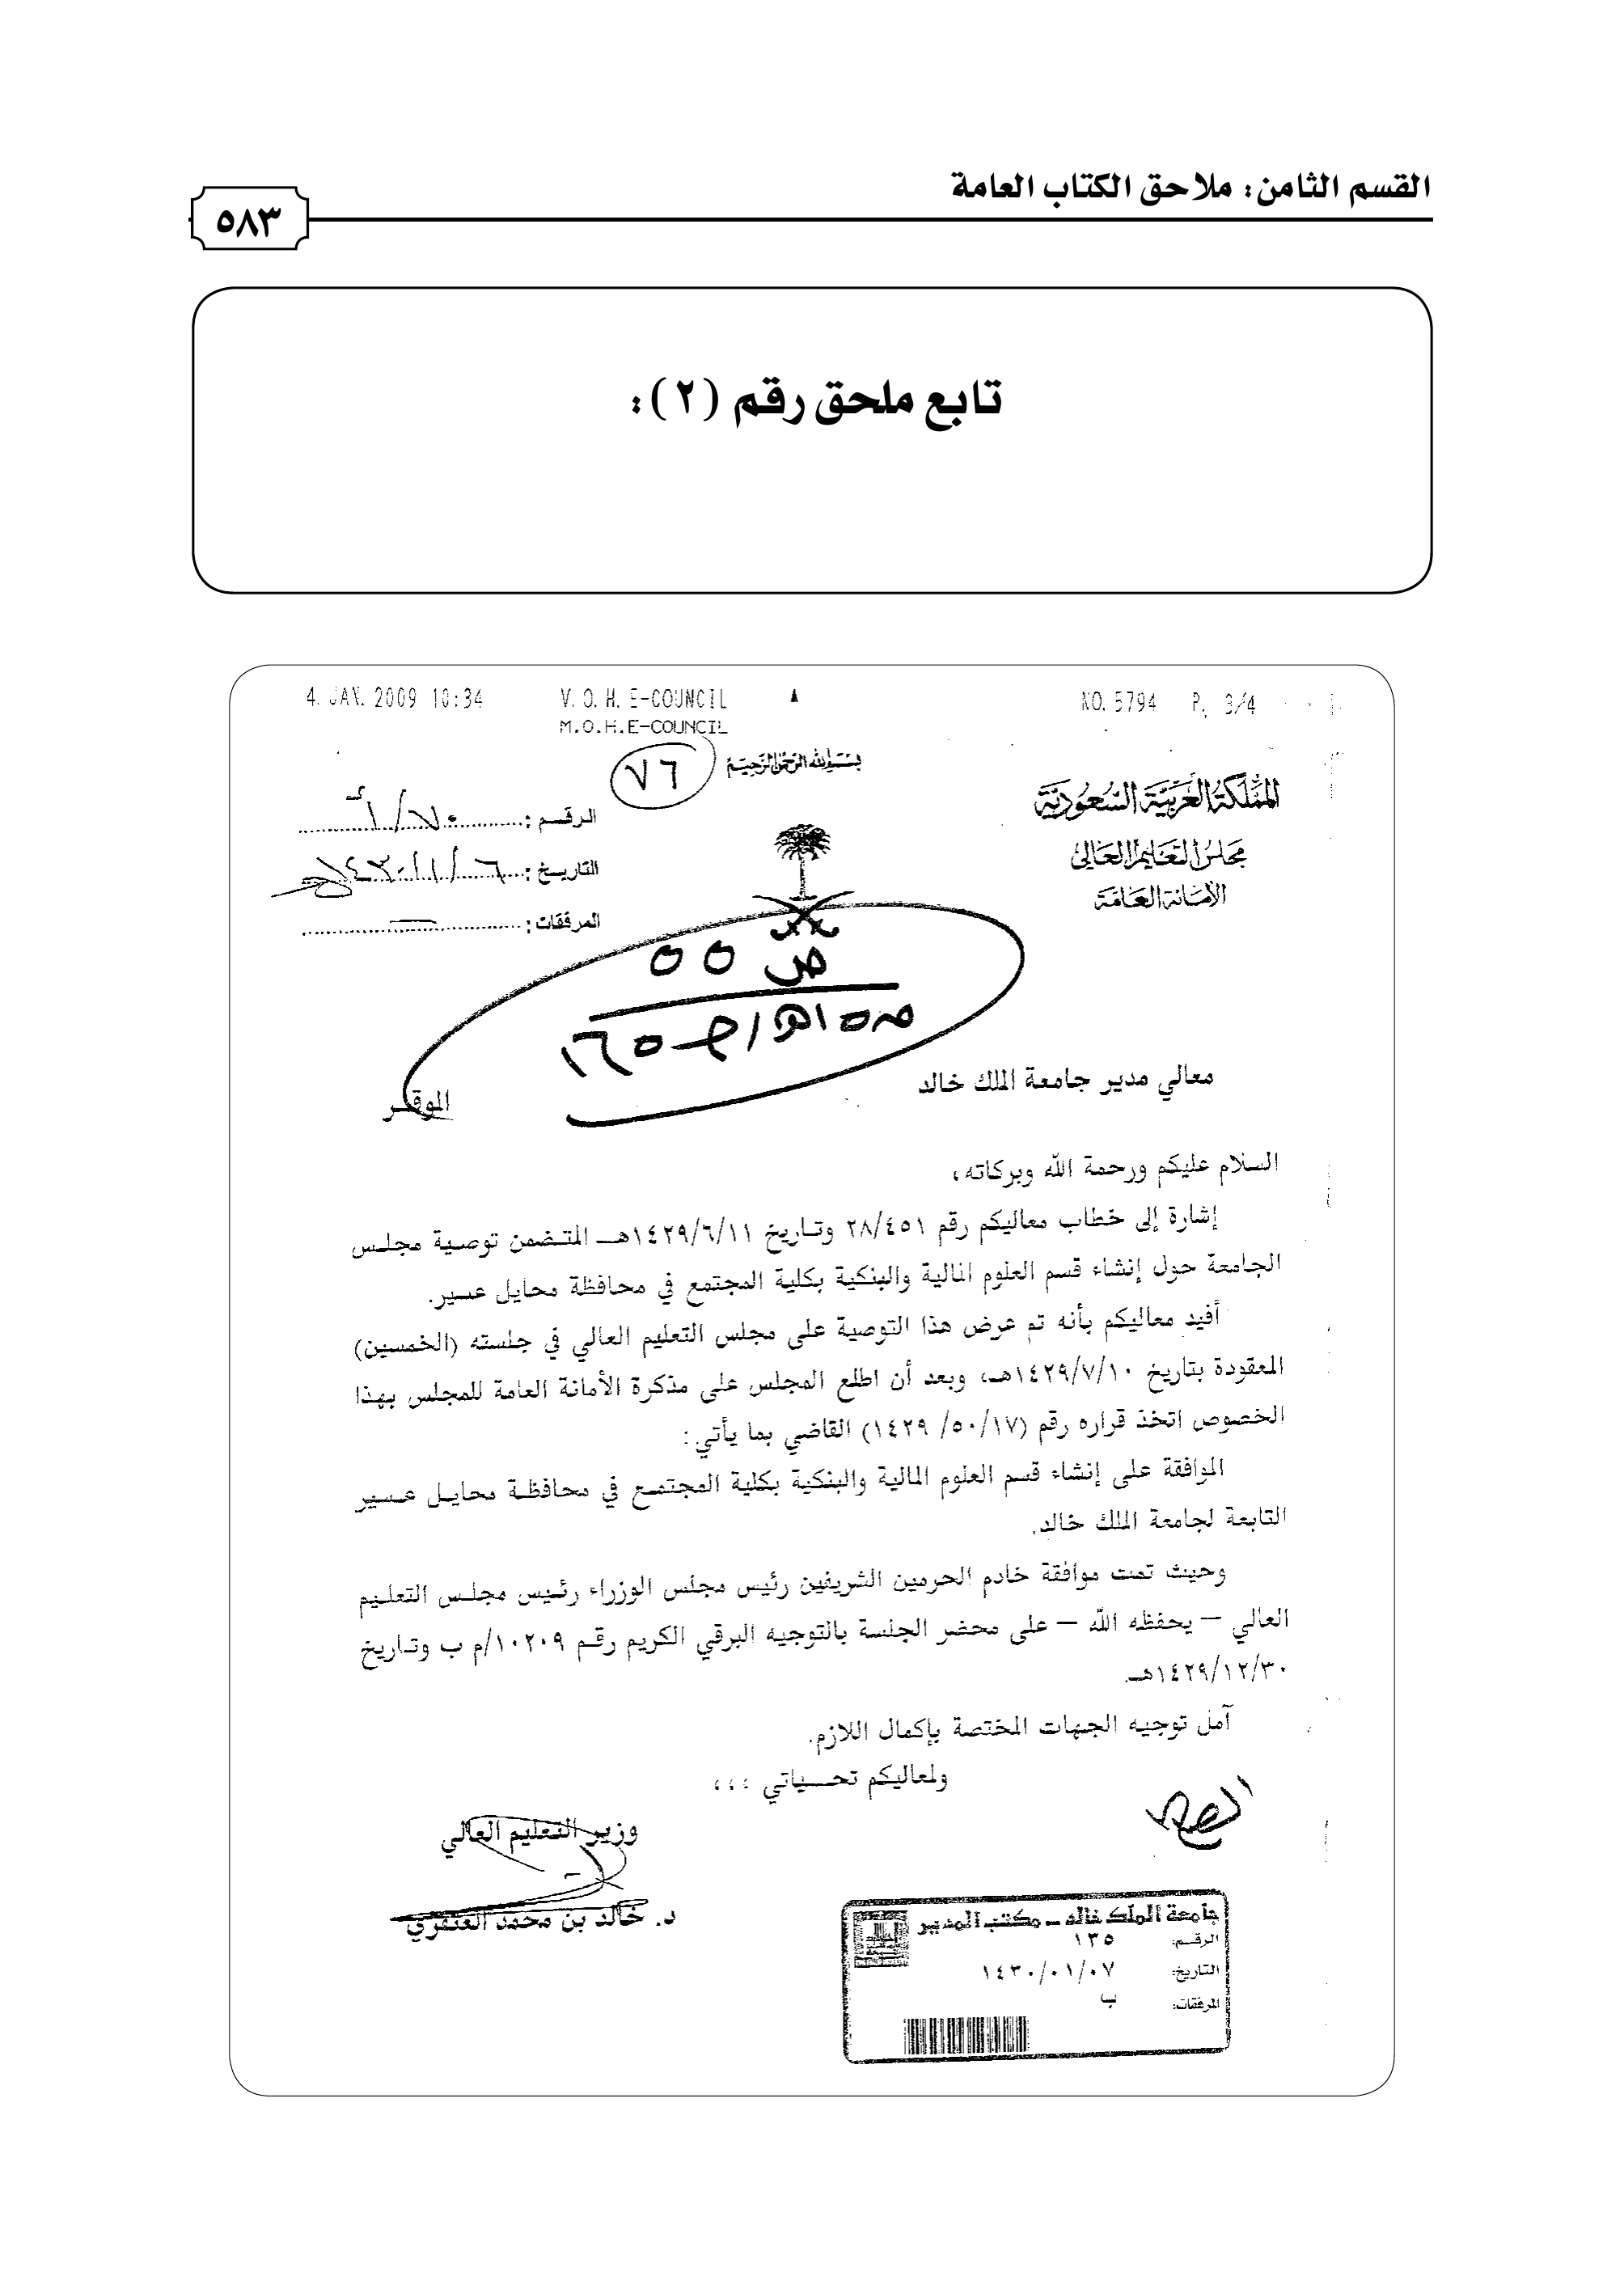 القسم الثامن: ملاحق الكتاب العامة
٥٨٣
تابع ملحق رقم (٢):
4. JAN. 2009 10:34 V. O. H. E-COUNCIL NO. 5794 P. 3/4
M.O.H.E-COUNCIL
بسم الله الرحمن الرحيم
٧٦
المملكة العربية السعودية
مجلس التعليم العالي
الأمانة العامة
الرقم :
التاريخ :
المرفقات :
ص ٥٥
معالي مدير جامعة الملك خالد الموقر
السلام عليكم ورحمة الله وبركاته،
إشارة إلى خطاب معاليكم رقم ٢٨/٤٥١ وتاريخ ١٤٢٩/٦/١١هـ المتضمن توصية مجلس
الجامعة حول إنشاء قسم العلوم المالية والبنكية بكلية المجتمع في محافظة محايل عسير.
أفيد معاليكم بأنه تم عرض هذا التوصية على مجلس التعليم العالي في جلسته (الخمسين)
المعقودة بتاريخ ١٤٢٩/٧/١٠هـ، وبعد أن اطلع المجلس على مذكرة الأمانة العامة للمجلس بهذا
الخصوص اتخذ قراره رقم (٥٠/١٧/ ١٤٢٩) القاضي بما يأتي:
الموافقة على إنشاء قسم العلوم المالية والبنكية بكلية المجتمع في محافظة محايل عسير
التابعة لجامعة الملك خالد.
وحيث تمت موافقة خادم الحرمين الشريفين رئيس مجلس الوزراء رئيس مجلس التعليم
العالي – يحفظه الله – على محضر الجلسة بالتوجيه البرقي الكريم رقم ١٠٢٠٩/م ب وتاريخ
١٤٢٩/١٢/٣٠هـ.
آمل توجيه الجهات المختصة بإكمال اللازم.
ولمعاليكم تحياتي ،،،
وزير التعليم العالي
د. خالد بن محمد العنقري
جامعة الملك خالد - مكتب المدير
الرقم: ١٣٥
التاريخ: ١٤٣٠/٠١/٠٧
المرفقات: ب